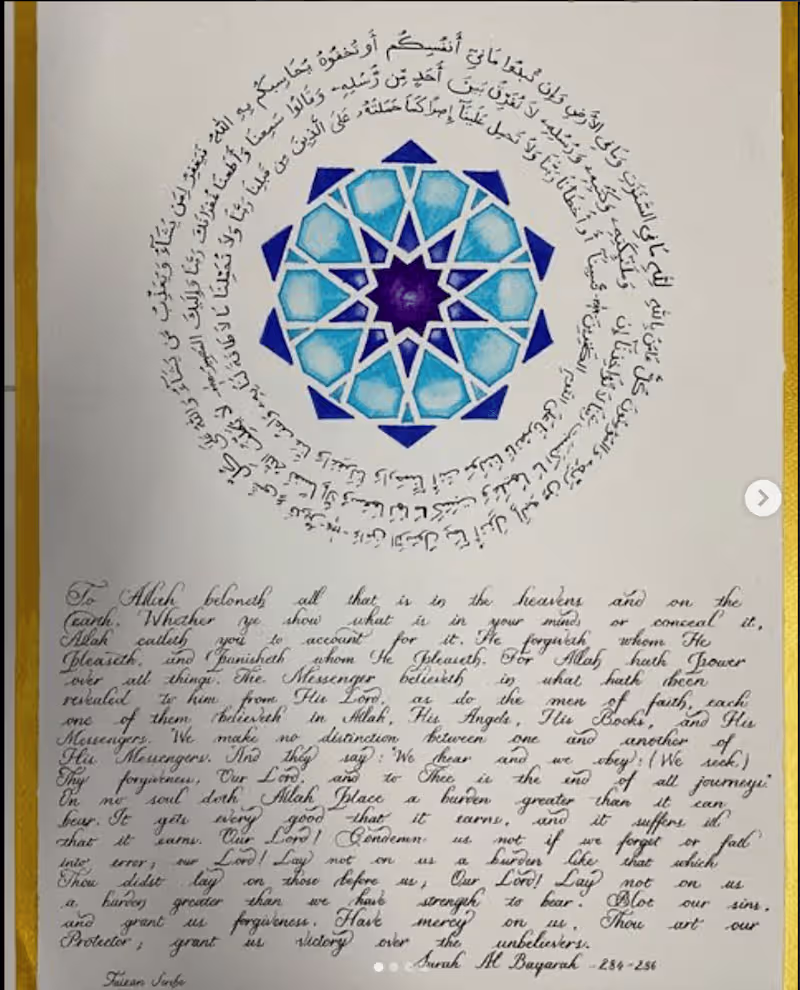 لِلَّهِ مَا فِي السَّمَٰوَٰتِ وَمَا فِي الْأَرْضِ وَإِن تُبْدُوا مَا فِي أَنفُسِكُمْ أَوْ تُخْفُوهُ يُحَاسِبْكُم بِهِ اللَّهُ فَيَغْفِرُ لِمَن يَشَاءُ وَيُعَذِّبُ مَن يَشَاءُ وَاللَّهُ عَلَىٰ كُلِّ شَيْءٍ قَدِيرٌ ءَامَنَ الرَّسُولُ بِمَا أُنزِلَ إِلَيْهِ مِن رَّبِّهِ وَالْمُؤْمِنُونَ كُلٌّ ءَامَنَ بِاللَّهِ
وَمَلَٰئِكَتِهِ وَكُتُبِهِ وَرُسُلِهِ لَا نُفَرِّقُ بَيْنَ أَحَدٍ مِّن رُّسُلِهِ وَقَالُوا سَمِعْنَا وَأَطَعْنَا غُفْرَانَكَ رَبَّنَا وَإِلَيْكَ الْمَصِيرُ لَا يُكَلِّفُ اللَّهُ نَفْسًا إِلَّا وُسْعَهَا لَهَا مَا كَسَبَتْ وَعَلَيْهَا مَا اكْتَسَبَتْ رَبَّنَا لَا تُؤَاخِذْنَا إِن
نَّسِينَا أَوْ أَخْطَأْنَا رَبَّنَا وَلَا تَحْمِلْ عَلَيْنَا إِصْرًا كَمَا حَمَلْتَهُ عَلَى الَّذِينَ مِن قَبْلِنَا رَبَّنَا وَلَا تُحَمِّلْنَا مَا لَا طَاقَةَ لَنَا بِهِ وَاعْفُ عَنَّا وَاغْفِرْ لَنَا وَارْحَمْنَا أَنتَ مَوْلَىٰنَا فَانصُرْنَا عَلَى الْقَوْمِ الْكَٰفِرِينَ
To Allah beloneth all that is in the heavens and on the
Earth. Whether ye show what is in your mind or conceal it,
Allah calleth you to account for it. He forgiveth whom He
pleaseth, and punisheth whom He pleaseth. For Allah hath power
over all things. The Messenger believeth in what hath been
revealed to him from His Lord, as do the men of faith, each
one of them believeth in Allah, His Angels, His Books, and His
Messengers. "We make no distinction between one and another of
His Messengers. "And they say: "We hear and we obey: (We seek)
Thy forgiveness, Our Lord, and to Thee is the end of all journeys."
On no soul doth Allah place a burden greater than it can
bear. It gets every good that it earns, and it suffers ill
that it earns. Our Lord! Condemn us not if we forget or fall
into error; our Lord! Lay not on us a burden like that which
Thou didst lay on those before us; Our Lord! Lay not on us
a burden greater than we have strength to bear. Blot our sins,
and grant us forgiveness. Have mercy on us. Thou art our
Protector; grant us victory over the unbelievers.
Surah Al Baqarah - 284-286
Faizan Scribe